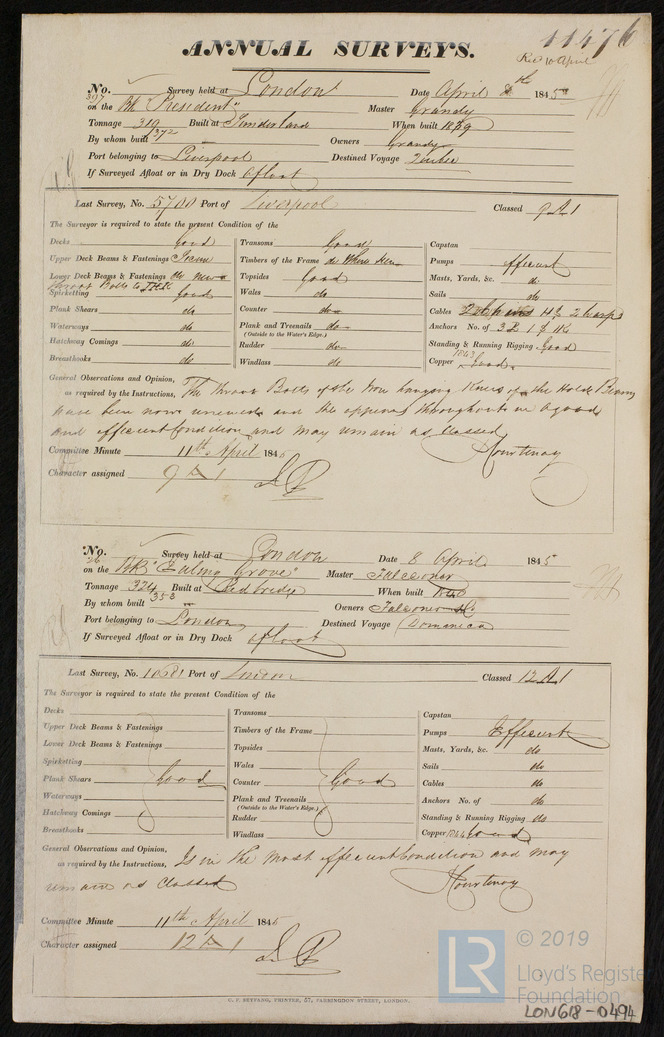 11476
ANNUAL SURVEYS.
Rec 10 April
No. 397 Survey held at London Date April 8th 1845
on the Bk "President" Master Grandy
Tonnage 319 Built at Sunderland When built 1829
372
By whom built — Owners Grandy
Port belonging to Liverpool Destined Voyage Quebec
If Surveyed Afloat or in Dry Dock Afloat
Last Survey, No. 5700 Port of Liverpool Classed 9 A 1
The Surveyor is required to state the present Condition of the
Decks Good
Upper Deck Beams & Fastenings
Lower Deck Beams & Fastenings do New
Throat Bolts to
Spirketting Good
Plank Shears do
Waterways do
Hatchway Comings do
Breasthooks do
Transoms Good
Timbers of the Frame do Where Seen
Topsides Good
Wales do
Counter do
Plank and Treenails do
(Outside to the Water's Edge.)
Rudder do
Windlass do
Capstan
Pumps efficient
Masts, Yards, &c. do
Sails do
Cables 2 Chains 2 Warps
Anchors No. of 3 B 1 S 1 K
Standing & Running Rigging Good
Copper 1843 Good
General Observations and Opinion,
as required by the Instructions, The throat Bolts of the Iron hanging Knees of the Hold Beams
have been now renewed and she appears throughout in a good
and efficient Condition and may remain as Classed
Courtenay
Committee Minute 11th April 1845
Character assigned 9 A 1
No. Survey held at London Date 8 April 1845
on the Bk "Balmo Grove" Master Falconer
Tonnage 324 Built at Redbridge When built 1840
353
By whom built — Owners Falconer &c
Port belonging to London Destined Voyage Domenica
If Surveyed Afloat or in Dry Dock afloat
Last Survey, No. Port of London Classed 12 A 1
The Surveyor is required to state the present Condition of the
Decks
Upper Deck Beams & Fastenings
Lower Deck Beams & Fastenings
Spirketting
Plank Shears Good
Waterways
Hatchway Comings
Breasthooks
Transoms
Timbers of the Frame
Topsides
Wales
Counter Good
Plank and Treenails
(Outside to the Water's Edge.)
Rudder
Windlass
Capstan
Pumps Efficient
Masts, Yards, &c. do
Sails do
Cables do
Anchors No. of do
Standing & Running Rigging do
Copper 1844 Good
General Observations and Opinion,
as required by the Instructions, Is in the most efficient Condition and may
remain as Classed
Courtenay
Committee Minute 11th April 1845
Character assigned 12 A 1
C. F. SEYFANG, PRINTER, 57, FARRINGDON STREET, LONDON.
LR © 2019
Lloyd's Register
Foundation
LON618-0494